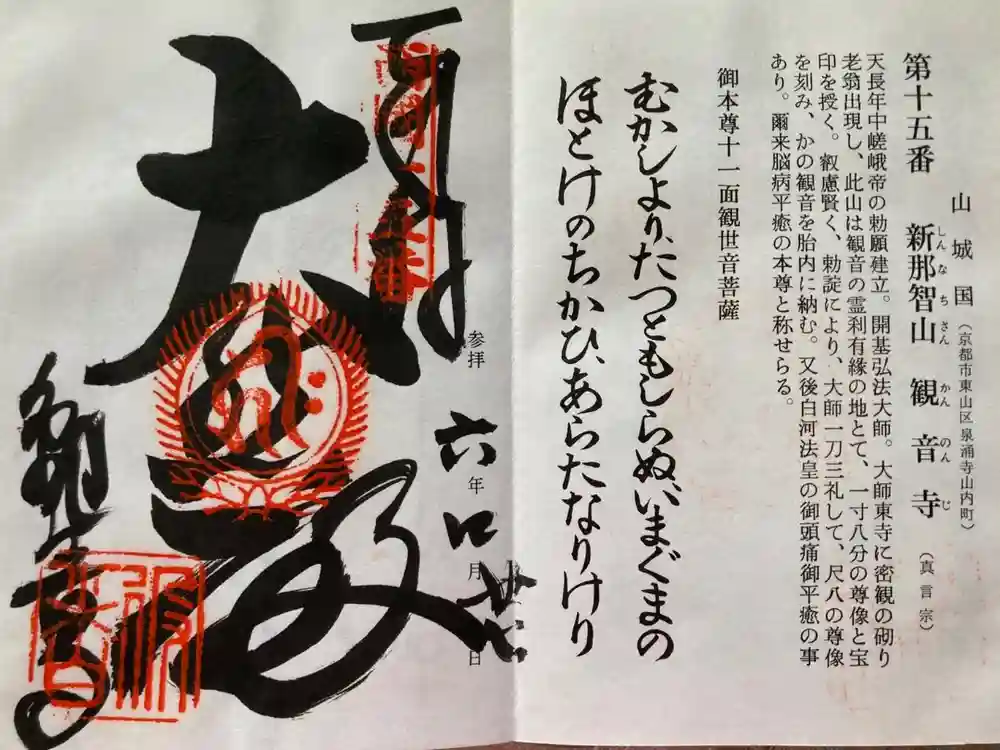 山城国（京都市東山区泉涌寺山内町）
第十五番　新那智山　観音寺（真言宗）
しんなちさん　かんのんじ
天長年中嵯峨帝の勅願建立。開基弘法大師。大師東寺に密観の砌り
老翁出現し、此山は観音の霊刹有縁の地とて、一寸八分の尊像と宝
印を授く。叡慮賢く、勅諚により、大師一刀三礼して、尺八の尊像
を刻み、かの観音を胎内に納む。又後白河法皇の御頭痛御平癒の事
あり。爾来脳病平癒の本尊と称せらる。
御本尊十一面観世音菩薩
むかしより、たつともしらぬ、いまぐまの
ほとけのちかひ、あらたなりけり
参拝　六年　月　日
大